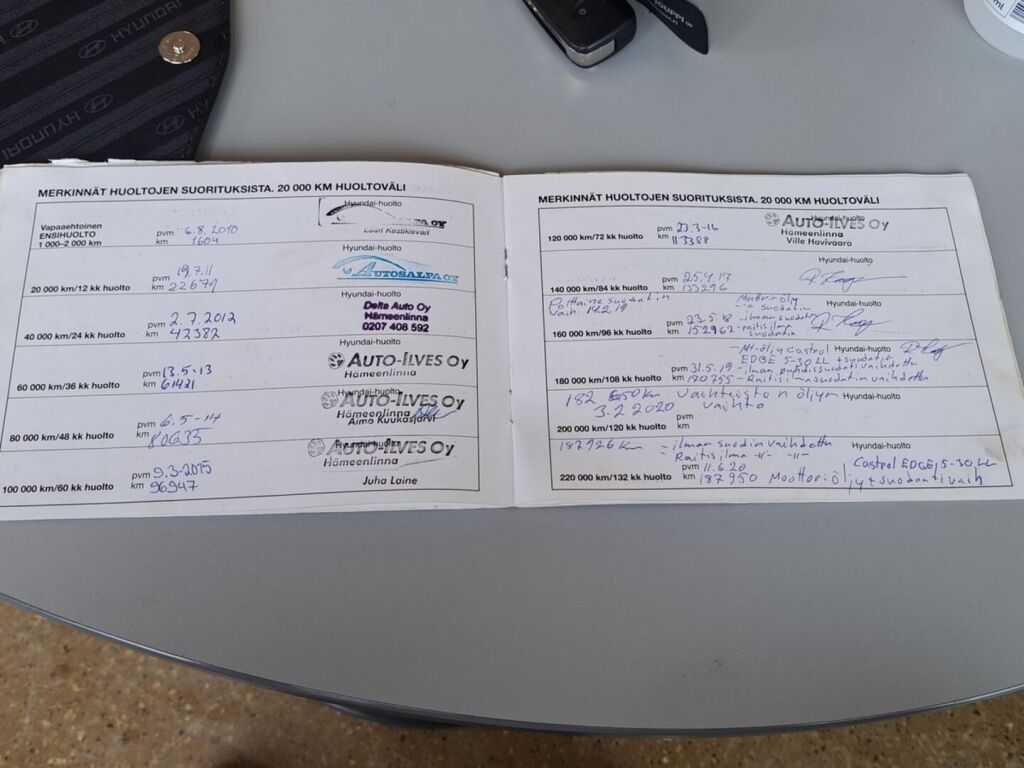 HYUNDAI
HYUNDAI
HYUNDAI
ml
MERKINNÄT HUOLTOJEN SUORITUKSISTA. 20 000 KM HUOLTOVÄLI
Hyundai-huolto
Vapaaehtoinen
ENSIHUOLTO
1 000–2 000 km
pvm 6.8.2010
km 1604
Lauri Keskikievari
Hyundai-huolto
AUTOSALPA OY
20 000 km/12 kk huolto
pvm 19.7.11
km 22679
Hyundai-huolto
Delta Auto Oy
Hämeenlinna
0207 408 592
40 000 km/24 kk huolto
pvm 2.7.2012
km 42382
Hyundai-huolto
AUTO-ILVES OY
Hämeenlinna
60 000 km/36 kk huolto
pvm 13.5-13
km 61421
Hyundai-huolto
AUTO-ILVES OY
Hämeenlinna
Aimo Kuukasjärvi
80 000 km/48 kk huolto
pvm 6.5-14
km 80635
Hyundai-huolto
AUTO-ILVES OY
Hämeenlinna
Juha Laine
100 000 km/60 kk huolto
pvm 9.3-2015
km 96947
MERKINNÄT HUOLTOJEN SUORITUKSISTA. 20 000 KM HUOLTOVÄLI
Hyundai-huolto
AUTO-ILVES OY
Hämeenlinna
Ville Havivaara
120 000 km/72 kk huolto
pvm 23.3-16
km 113388
Hyundai-huolto
140 000 km/84 kk huolto
pvm 25.4.17
km 133296
Polttoainesuodatin
vaih. 14.2.19
Moottoriöljy
-"- suodatin
Hyundai-huolto
160 000 km/96 kk huolto
pvm 23.5.18 -ilmansuodatin
km 152962 -raitisilma
suodatin
Hyundai-huolto
-Mt-öljy Castrol
EDGE 5-30 LL + suodatin
180 000 km/108 kk huolto
pvm 31.5.19 -ilman puhdissuodati vaihdettu
km 170755 -Raitisilmasuodatin vaihdettu
Hyundai-huolto
182 650 km Vaihteiston öljyn
3.2.2020 vaihto
200 000 km/120 kk huolto
pvm
km
Hyundai-huolto
187926 km - ilman suodin vaihdettu
- Raitisilma -"- -"-
220 000 km/132 kk huolto
pvm 11.6.20
Castrol EDGE, 5-30 LL
km 187950 Moottoriöljy + suodantivaih